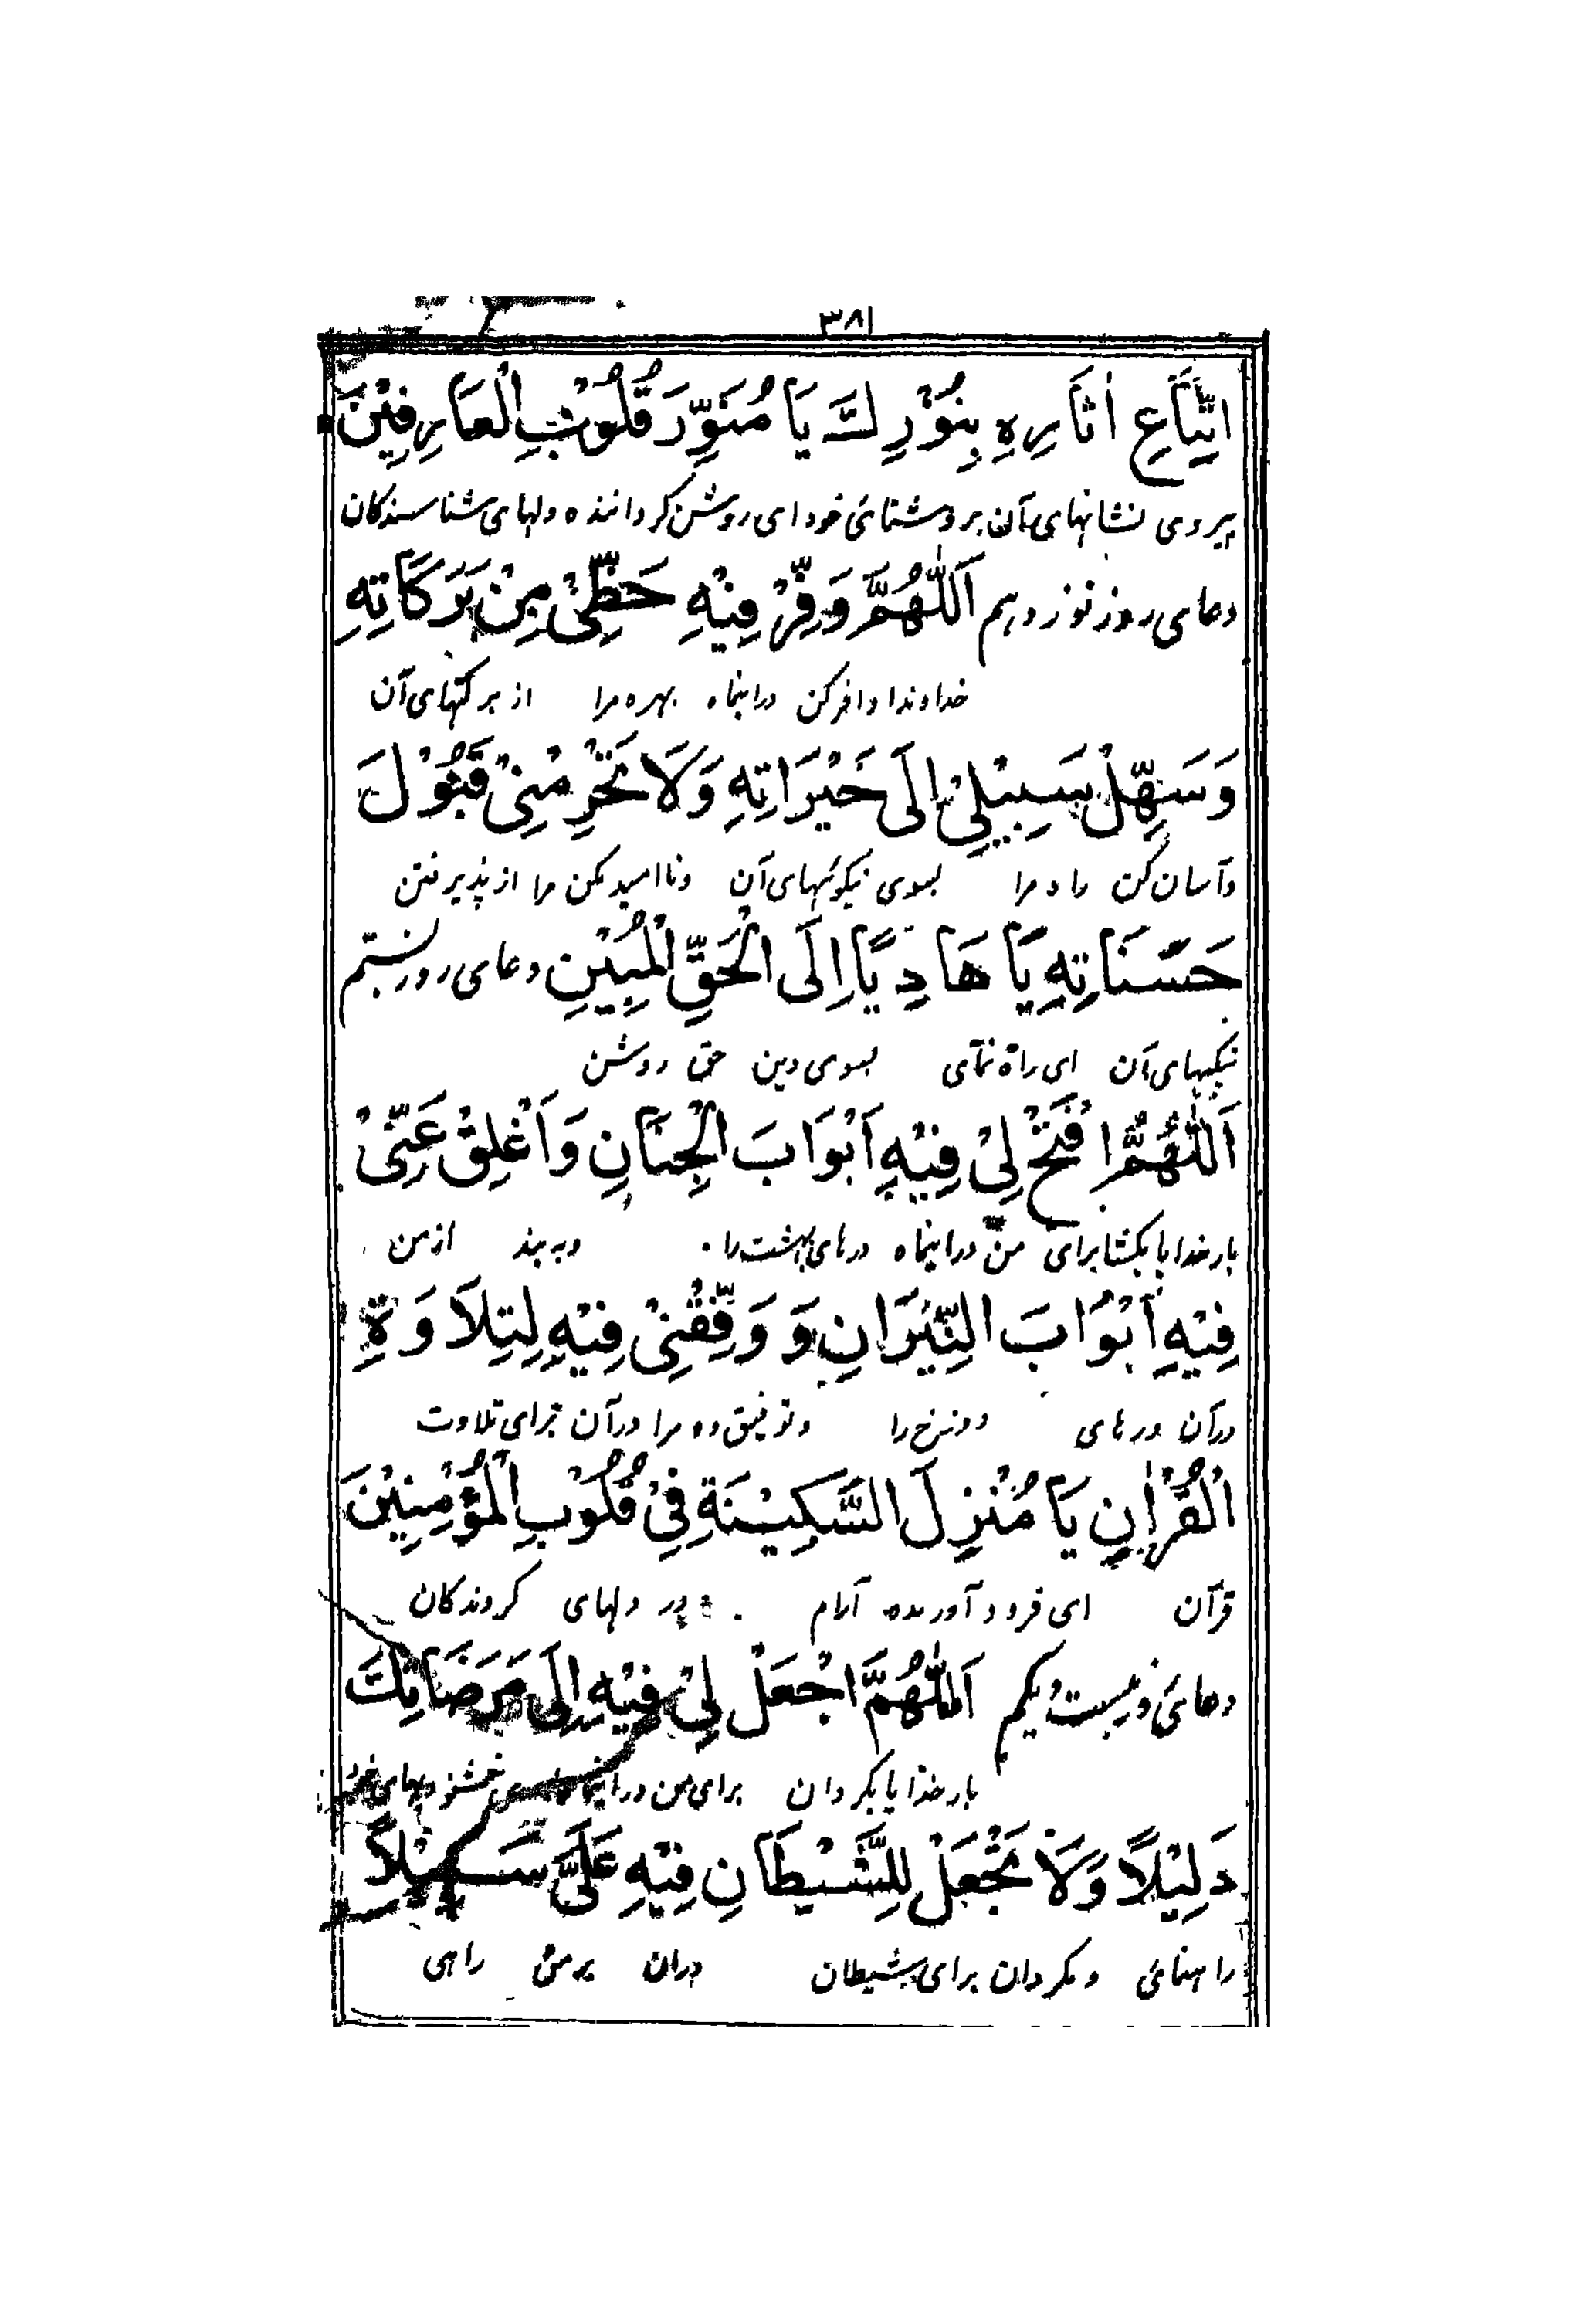 ۳۸۱
اتِّبَاعِ اٰثَارِهِ بِنُوْرِكَ يَا مُنَوِّرَ قُلُوْبِ الْعَارِفِيْنَ
پیروی نشانهای آن بروشنائ خود ای روشن کرداننده دلهای شناسندکان
دعای روز نوزدہم اَللّٰهُمَّ وَفِّرْ فِيْهِ حَظِّيْ مِنْ بَرَكَاتِهِ
خداوندا وافر کن دراینماه بهره مرا از برکتهای آن
وَسَهِّلْ سَبِيْلِيْ اِلَى خَيْرَاتِهِ وَلَا تَحْرِمْنِيْ قَبُوْلَ
وآسان کن راه مرا بسوی نیکوئیهای آن وناامید مکن مرا از پذیرفتن
حَسَنَاتِهِ يَا هَادِيًا اِلَى الْحَقِّ الْمُبِيْنِ دعای روز بستم
نیکیهای آن ای راه نمای بسوی دین حق روشن
اَللّٰهُمَّ افْتَحْ لِيْ فِيْهِ اَبْوَابَ الْجِنَانِ وَاَغْلِقْ عَنِّيْ
بارخدایا بکشا برای من دراینماه درهای بهشت را وبه بند ازمن
فِيْهِ اَبْوَابَ النِّيْرَانِ وَ وَفِّقْنِيْ فِيْهِ لِتِلَاوَةِ
درآن درهای دوزخ را وتوفیق ده مرا درآن برای تلاوت
الْقُرْاٰنِ يَا مُنْزِلَ السَّكِيْنَةِ فِيْ قُلُوْبِ الْمُؤْمِنِيْنَ
قرآن ای فرود آورنده آرام در دلهای کروندکان
دعائ بیست ویکم اَللّٰهُمَّ اجْعَلْ لِيْ فِيْهِ اِلَى مَرَضَاتِكَ
بارخدایا بکردان برای من خشنودیهای
دَلِيْلًا وَلَا تَجْعَلْ لِلشَّيْطَانِ فِيْهِ عَلَيَّ سَبِيْلًا
راهنمائ ومکردان برای شیطان دران برمن راهی